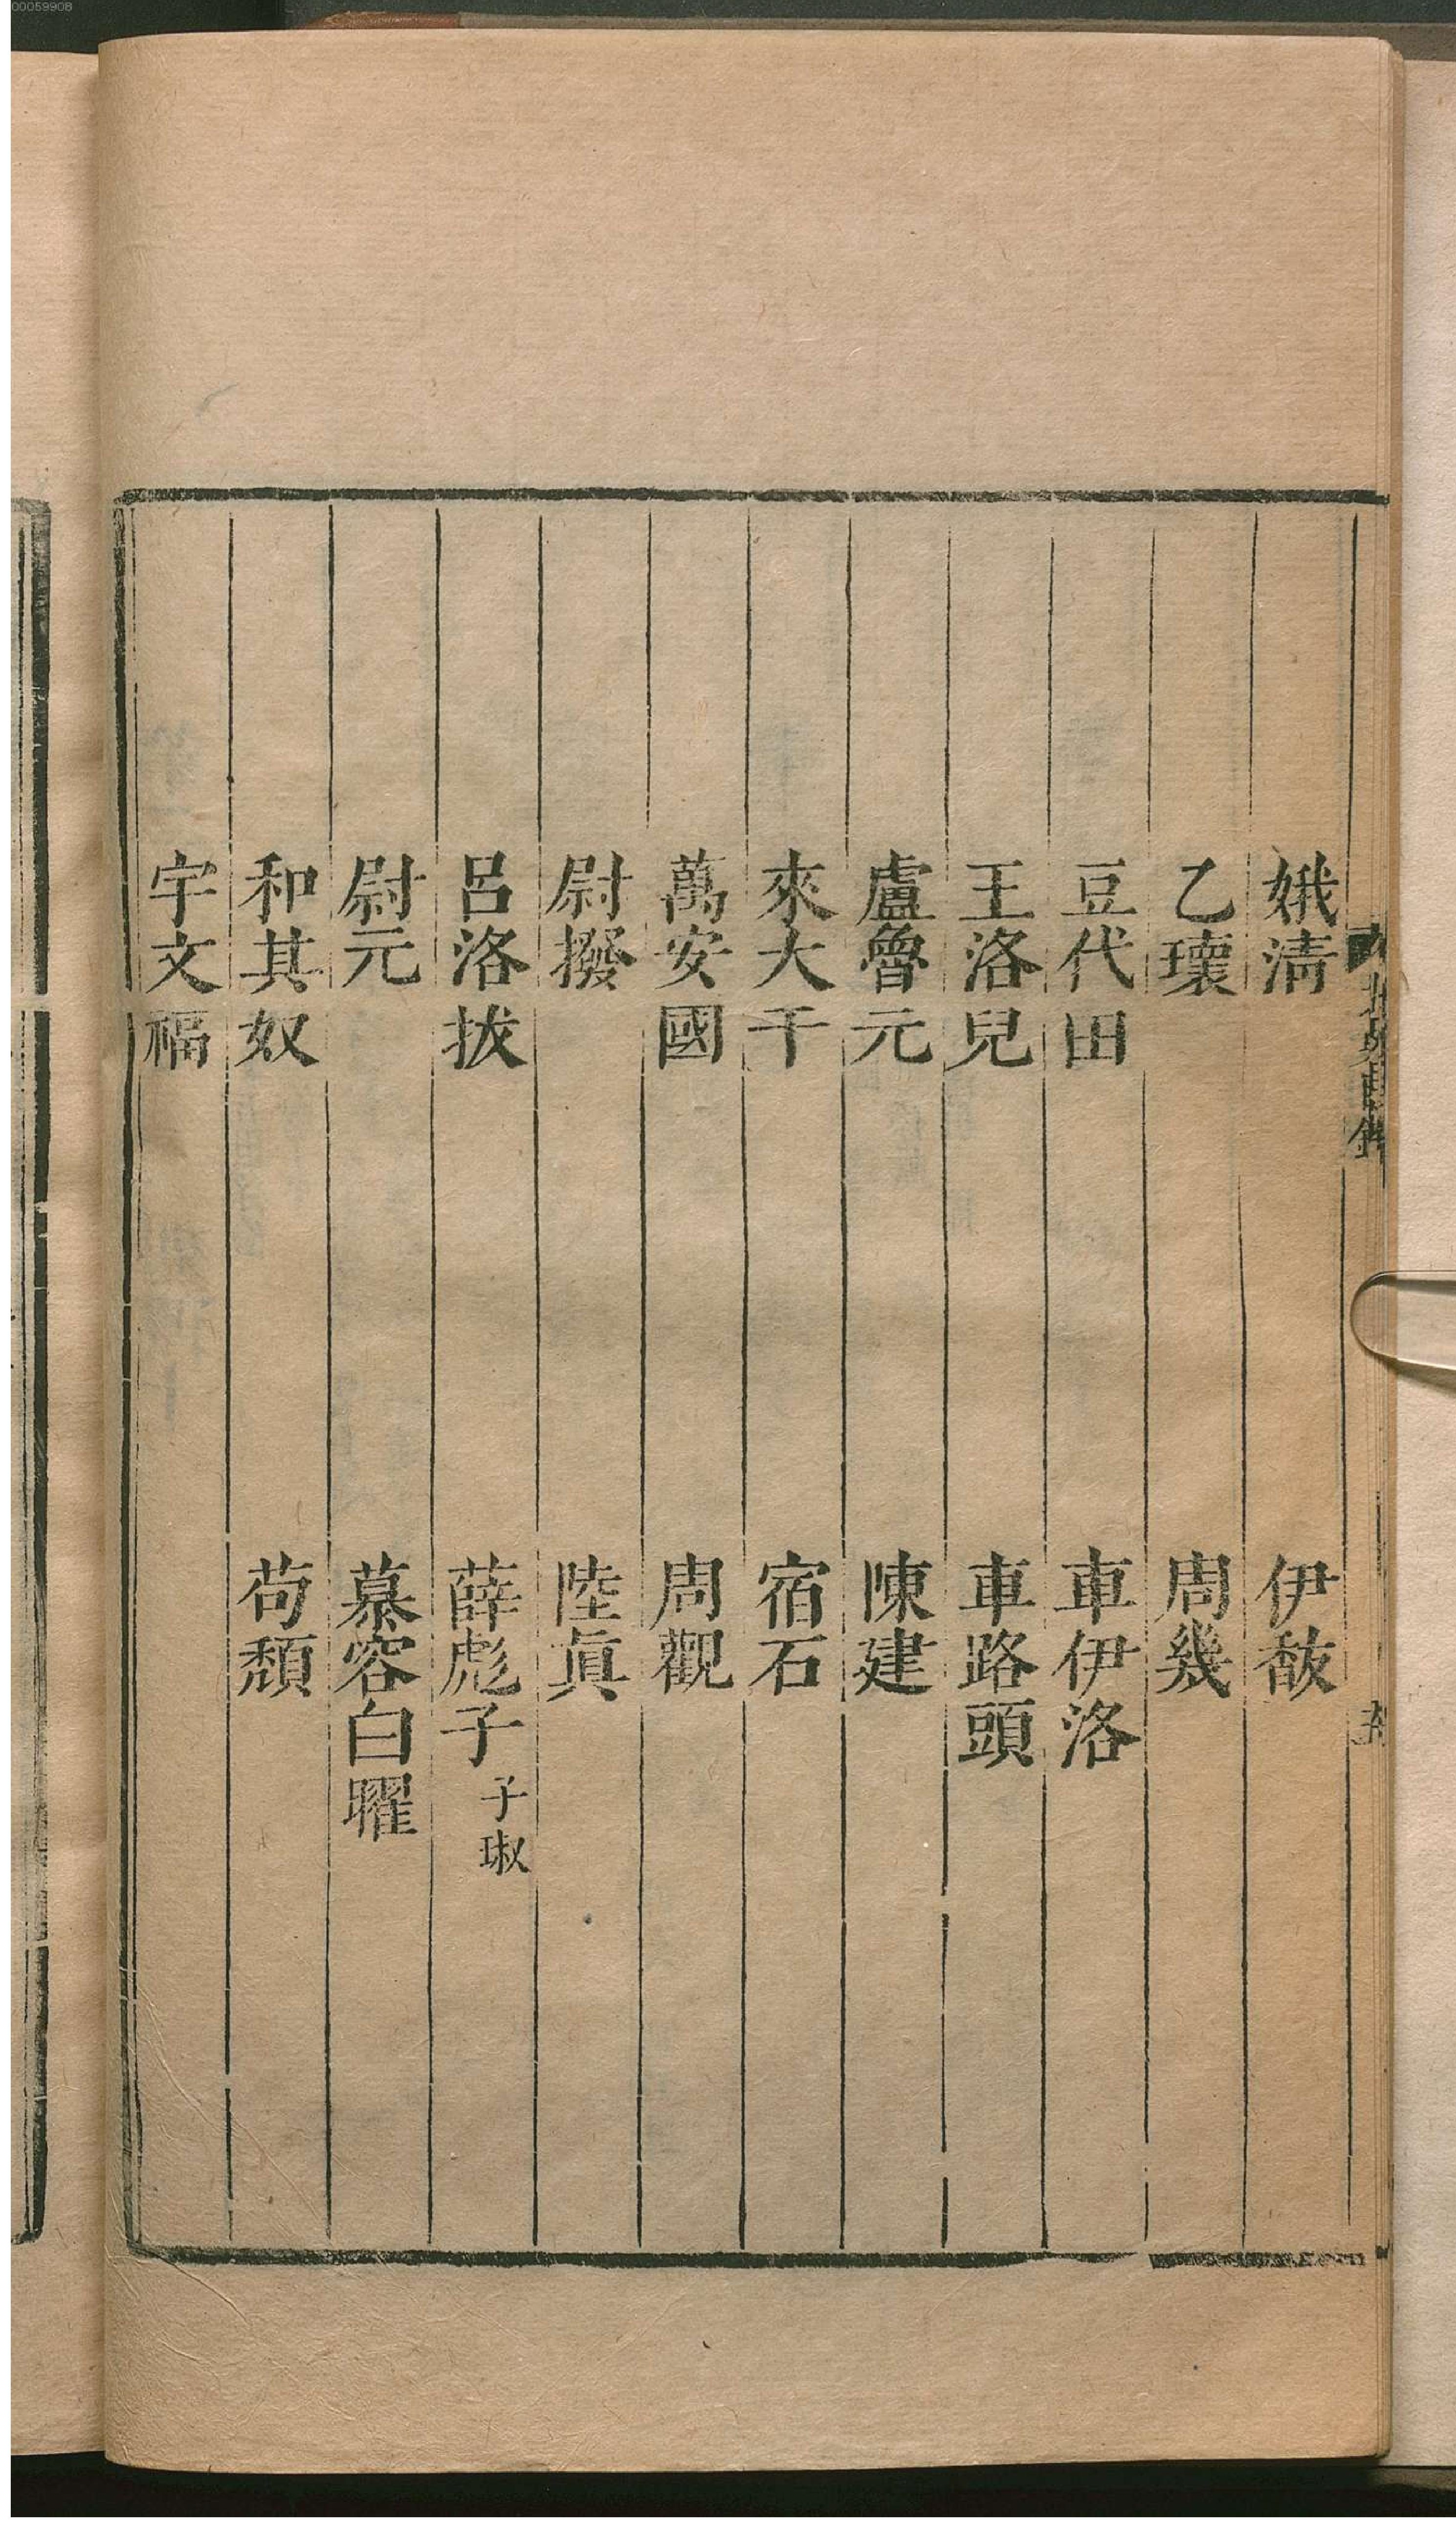 00059908
北史目錄
娥淸 伊馛
乙瓌 周幾
豆代田 車伊洛
王洛兒 車路頭
盧魯元 陳建
來大千 宿石
萬安國 周觀
尉撥 陸眞
呂洛拔 薛彪子 子琡
尉元 慕容白曜
和其奴 苟頹
宇文福